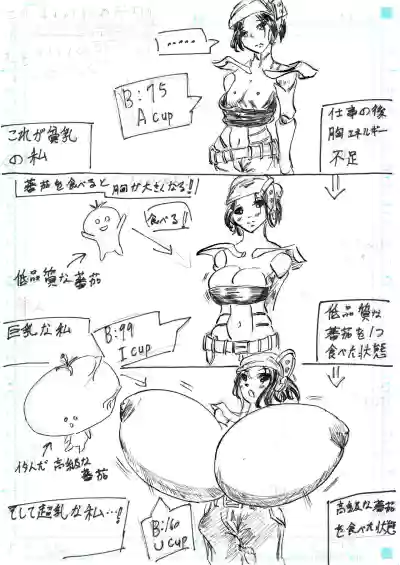 .....
B:75
A cup
これが貧乳
の私
仕事の後
胸エネルギー
不足
蕃茄を食べると胸が大きくなる!!
食べる!!
低品質な蕃茄
巨乳な私
B:99
I cup
低品質な
蕃茄を1つ
食べた状態
高級な
蕃茄
そして超乳な私…!
B:160
U cup
高級な蕃茄
を食べた状態